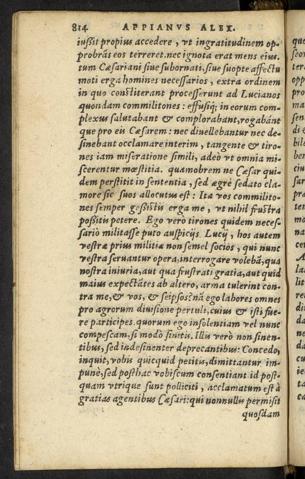 814 APPIANVS ALEX.
iussit propius accedere, vt ingratitudinem op-
probrãs eos terreret. nec ignota erat mens eius.
tum Cæsariani siue subornati, siue suopte affectu
moti erga homines necessarios, extra ordinem
in quo constiterant processerunt ad Lucianos
quondam commilitones: effusiq; in eorum com-
plexus salutabant & complorabant, rogabánt
que pro eis Cæsarem: nec diuellebantur nec de-
sinebant occlamare interim, tangente & tiro-
nes iam miseratione simili, adeò vt omnia mi-
scerentur mœstitia. quamobrem ne Cæsar qui-
dem perstitit in sententia, sed ægrè sedato cla-
more sic suos allocutus est: Ita vos commilito-
nes semper gessistis erga me, vt nihil frustra
possitis petere. Ego verò tirones quidem neces-
sariò militasse puto auspicijs Lucij, hos autem
vestræ prius militiæ non semel socios, qui nunc
vestra seruantur opera, interrogare volebã, qua
nostra iniuria, aut qua frustrati gratia, aut quid
maius expectãtes ab altero, arma tulerint con-
tra me, & vos, & seipsos: nã ego labores omnes
pro agrorum diuisione pertuli, cuius & isti fue-
re participes. quorum ego insolentiam vel nunc
compescam, si modò sinitis. Illis verò non sinen-
tibus, sed indesinenter deprecantibus: Concedo,
inquit, vobis quicquid petitis, dimittantur im-
punè, sed posthac vobiscum consentiant. id post-
quam vtrique sunt polliciti, acclamatum est à
gratias agentibus Cæsari: qui nonnullis permisit
quosdam